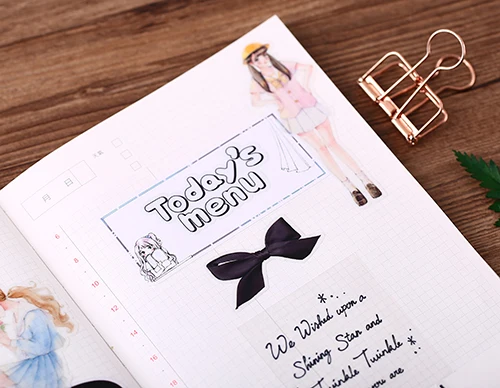 月 日
6
8
10
12
14
16
18
Today's
menu
We Wished upon a
Shining Star and
Twinkle Twinkle
you are